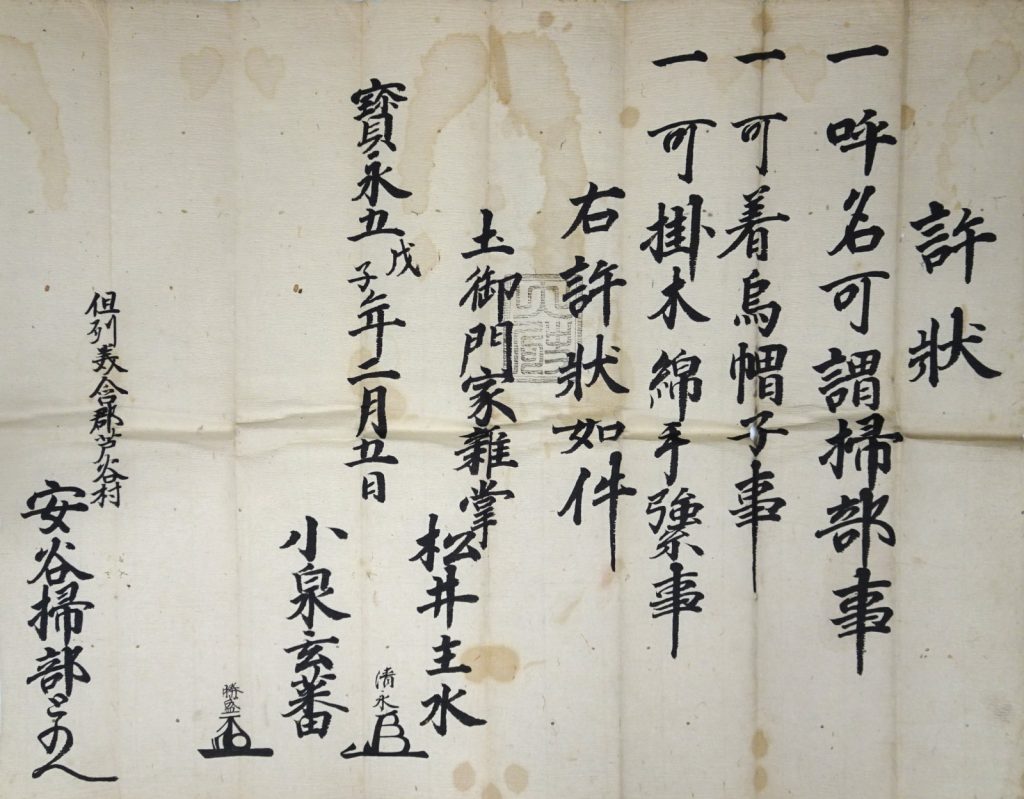 許狀
一 呼名可謂掃部事
一 可着烏帽子事
一 可掛木綿手繦事
右許狀如件
土御門家雜掌
松井主水
清永
小泉玄蕃
勝盛
寶永五戊子年二月五日
但列美含郡芦谷村
安谷掃部とのへ